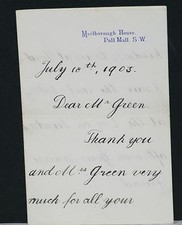 Marlborough House,
Pall Mall. S.W.
July 10th, 1903.
Dear Mr Green.
Thank you
and Mrs Green very
much for all your